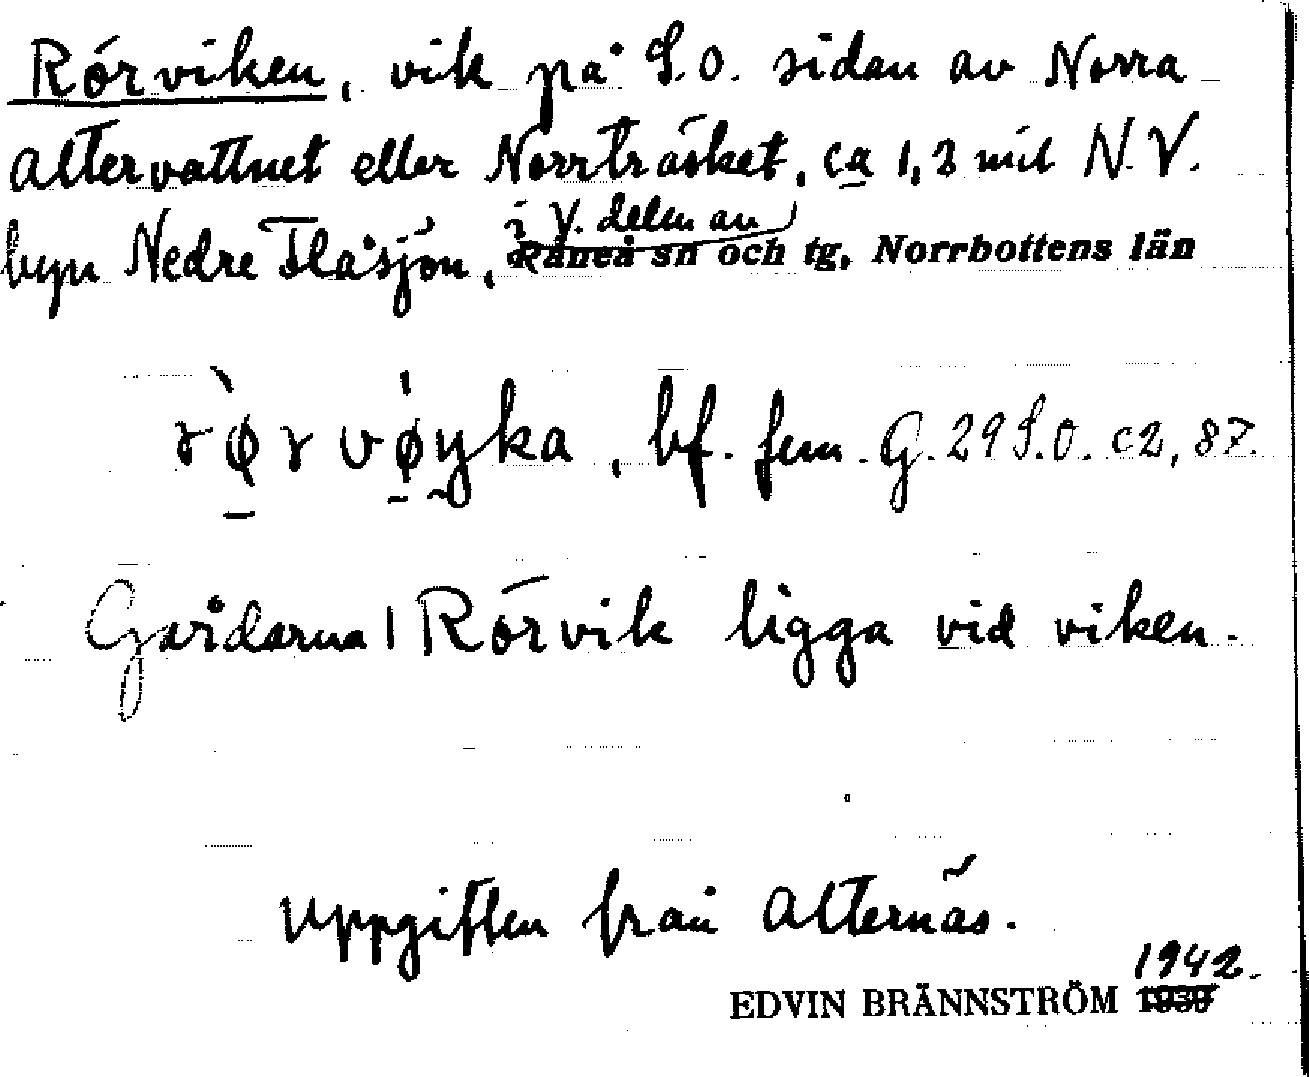 Rörviken, vik på S.O. sidan av Norra
Altervattnet eller Norrträsket, ca 1,3 mil N.V.
byn Nedre Flåsjön, i V. delen av
Råneå sn och tg, Norrbottens län
rø̀rvøyka, bf. fem. G. 29 S.O. c2, 87.
Gårdarna Rörvik ligga vid viken.
Uppgiften från Alternäs.
1942.
EDVIN BRÄNNSTRÖM 1939